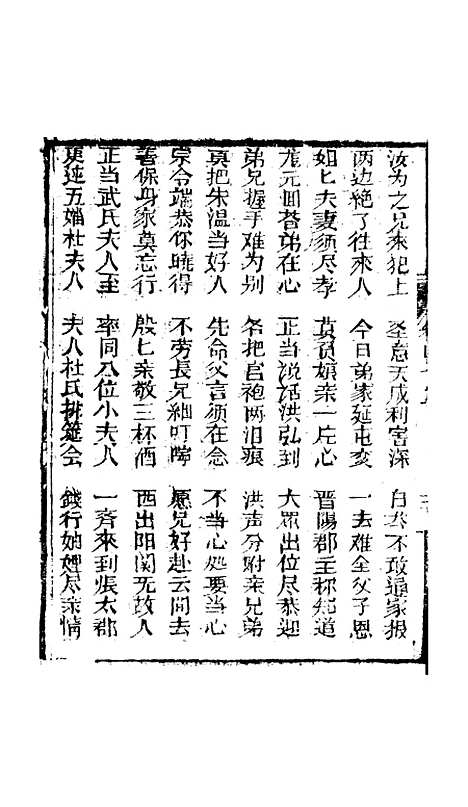 汝为之兄來犯上 圣意天成利害深 自玄不敢通家报
两边絶了往來人 今日弟家延屯变 一去难全父子恩
姐匕夫妻须尽孝 莫負娘亲一片心 晋陽郡主称知道
龙元回荅弟在心 正当説话洪弘到 大眾出位尽恭迎
弟兄握手难为别 各把官袍两泪痕 洪声分咐亲兄弟
莫把朱温当好人 先命父言须在念 不当心処要当心
宗令端恭你暁得 不劳長兄細叮咛 愿兄好赴云间去
善保身家莫忘行 殷七亲敬三杯酒 西出阳関无故人
正当武氏夫人至 率同八位小夫人 一斉來到張太郡
更延五嫂杜夫人 夫人杜氏排筵会 錢行她娌尽亲情